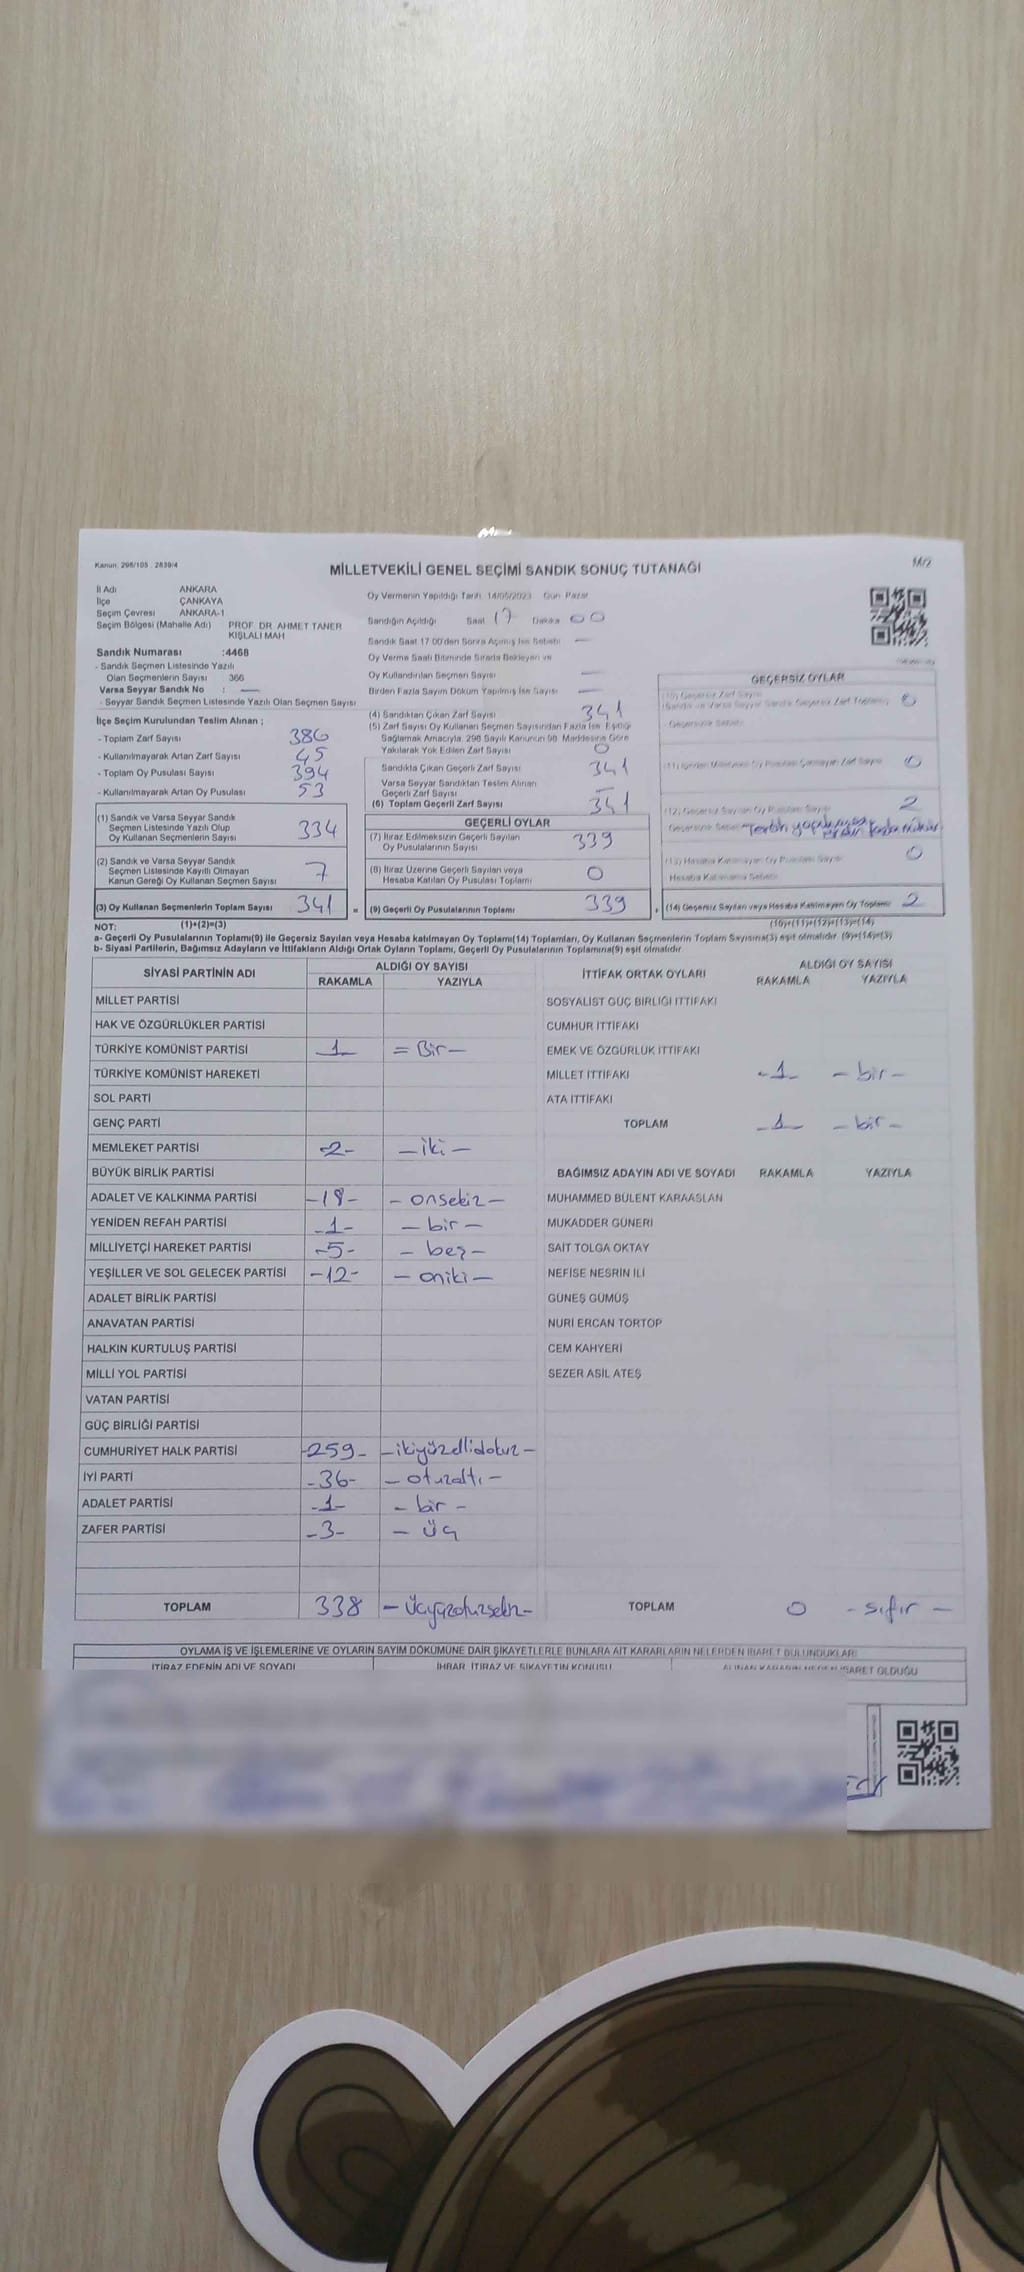 Kanun: 298/105 2839/4
M/2
MİLLETVEKİLİ GENEL SEÇİMİ SANDIK SONUÇ TUTANAĞI
İl Adı ANKARA
İlçe ÇANKAYA
Seçim Çevresi ANKARA-1
Seçim Bölgesi (Mahalle Adı) PROF. DR. AHMET TANER
KIŞLALI MAH
Sandık Numarası :4468
- Sandık Seçmen Listesinde Yazılı
Olan Seçmenlerin Sayısı 366
Varsa Seyyar Sandık No : —
- Seyyar Sandık Seçmen Listesinde Yazılı Olan Seçmen Sayısı
İlçe Seçim Kurulundan Teslim Alınan ;
- Toplam Zarf Sayısı 386
- Kullanılmayarak Artan Zarf Sayısı 45
- Toplam Oy Pusulası Sayısı 394
- Kullanılmayarak Artan Oy Pusulası 53
(1) Sandık ve Varsa Seyyar Sandık
Seçmen Listesinde Yazılı Olup
Oy Kullanan Seçmenlerin Sayısı 334
(2) Sandık ve Varsa Seyyar Sandık
Seçmen Listesinde Kayıtlı Olmayan
Kanun Gereği Oy Kullanan Seçmen Sayısı 7
(3) Oy Kullanan Seçmenlerin Toplam Sayısı 341 =
(1)+(2)=(3)
Oy Vermenin Yapıldığı Tarih 14/05/2023 Gün Pazar
Sandığın Açıldığı Saat 17 Dakika 00
Sandık Saat 17:00'den Sonra Açılmış İse Sebebi —
Oy Verme Saati Bitiminde Sırada Bekleyen ve
Oy Kullandırılan Seçmen Sayısı —
Birden Fazla Sayım Döküm Yapılmış İse Sayısı —
(4) Sandıktan Çıkan Zarf Sayısı 341
(5) Zarf Sayısı Oy Kullanan Seçmen Sayısından Fazla İse, Eşitliği
Sağlamak Amacıyla, 298 Sayılı Kanunun 98. Maddesine Göre
Yakılarak Yok Edilen Zarf Sayısı 0
Sandıkta Çıkan Geçerli Zarf Sayısı 341
Varsa Seyyar Sandıktan Teslim Alınan
Geçerli Zarf Sayısı —
(6) Toplam Geçerli Zarf Sayısı 341
GEÇERLİ OYLAR
(7) İtiraz Edilmeksizin Geçerli Sayılan
Oy Pusulalarının Sayısı 339
(8) İtiraz Üzerine Geçerli Sayılan veya
Hesaba Katılan Oy Pusulası Toplamı 0
(9) Geçerli Oy Pusulalarının Toplamı 339
GEÇERSİZ OYLAR
(10) Geçersiz Zarf Sayısı
(Sandık ve Varsa Seyyar Sandık Geçersiz Zarf Toplamı) 0
- Geçersizlik Sebebi
(11) İçinden Milletvekili Oy Pusulası Çıkmayan Zarf Sayısı 0
(12) Geçersiz Sayılan Oy Pusulası Sayısı 2
Geçersizlik Sebebi
(13) Hesaba Katılmayan Oy Pusulası Sayısı 0
Hesaba Katılmama Sebebi
(14) Geçersiz Sayılan veya Hesaba Katılmayan Oy Toplamı 2
(10)+(11)+(12)+(13)=(14)
NOT:
a- Geçerli Oy Pusulalarının Toplamı(9) ile Geçersiz Sayılan veya Hesaba katılmayan Oy Toplamı(14) Toplamları, Oy Kullanan Seçmenlerin Toplam Sayısına(3) eşit olmalıdır. (9)+(14)=(3)
b- Siyasi Partilerin, Bağımsız Adayların ve İttifakların Aldığı Ortak Oyların Toplamı, Geçerli Oy Pusulalarının Toplamına(9) eşit olmalıdır.
SİYASİ PARTİNİN ADI ALDIĞI OY SAYISI
RAKAMLA YAZIYLA
MİLLET PARTİSİ
HAK VE ÖZGÜRLÜKLER PARTİSİ
TÜRKİYE KOMÜNİST PARTİSİ 1 = Bir —
TÜRKİYE KOMÜNİST HAREKETİ
SOL PARTİ
GENÇ PARTİ
MEMLEKET PARTİSİ -2- — iki —
BÜYÜK BİRLİK PARTİSİ
ADALET VE KALKINMA PARTİSİ -18- — onsekiz —
YENİDEN REFAH PARTİSİ -1- — bir —
MİLLİYETÇİ HAREKET PARTİSİ -5- — beş —
YEŞİLLER VE SOL GELECEK PARTİSİ -12- — oniki —
ADALET BİRLİK PARTİSİ
ANAVATAN PARTİSİ
HALKIN KURTULUŞ PARTİSİ
MİLLİ YOL PARTİSİ
VATAN PARTİSİ
GÜÇ BİRLİĞİ PARTİSİ
CUMHURİYET HALK PARTİSİ -259- — ikiyüzellidokuz —
İYİ PARTİ -36- — otuzaltı —
ADALET PARTİSİ -1- — bir —
ZAFER PARTİSİ -3- — üç
TOPLAM 338 — Üçyüzotuzsekiz —
İTTİFAK ORTAK OYLARI ALDIĞI OY SAYISI
RAKAMLA YAZIYLA
SOSYALİST GÜÇ BİRLİĞİ İTTİFAKI
CUMHUR İTTİFAKI
EMEK VE ÖZGÜRLÜK İTTİFAKI
MİLLET İTTİFAKI -1- — bir —
ATA İTTİFAKI
TOPLAM -1- — bir —
BAĞIMSIZ ADAYIN ADI VE SOYADI RAKAMLA YAZIYLA
MUHAMMED BÜLENT KARAASLAN
MUKADDER GÜNERİ
SAİT TOLGA OKTAY
NEFİSE NESRİN İLİ
GÜNEŞ GÜMÜŞ
NURİ ERCAN TORTOP
CEM KAHYERİ
SEZER ASİL ATEŞ
TOPLAM 0 — sıfır —
OYLAMA İŞ VE İŞLEMLERİNE VE OYLARIN SAYIM DÖKÜMÜNE DAİR ŞİKAYETLERLE BUNLARA AİT KARARLARIN NELERDEN İBARET BULUNDUKLARI
İTİRAZ EDENİN ADI VE SOYADI İHBAR, İTİRAZ VE ŞİKAYETİN KONUSU ALINAN KARARIN NEDEN İBARET OLDUĞU